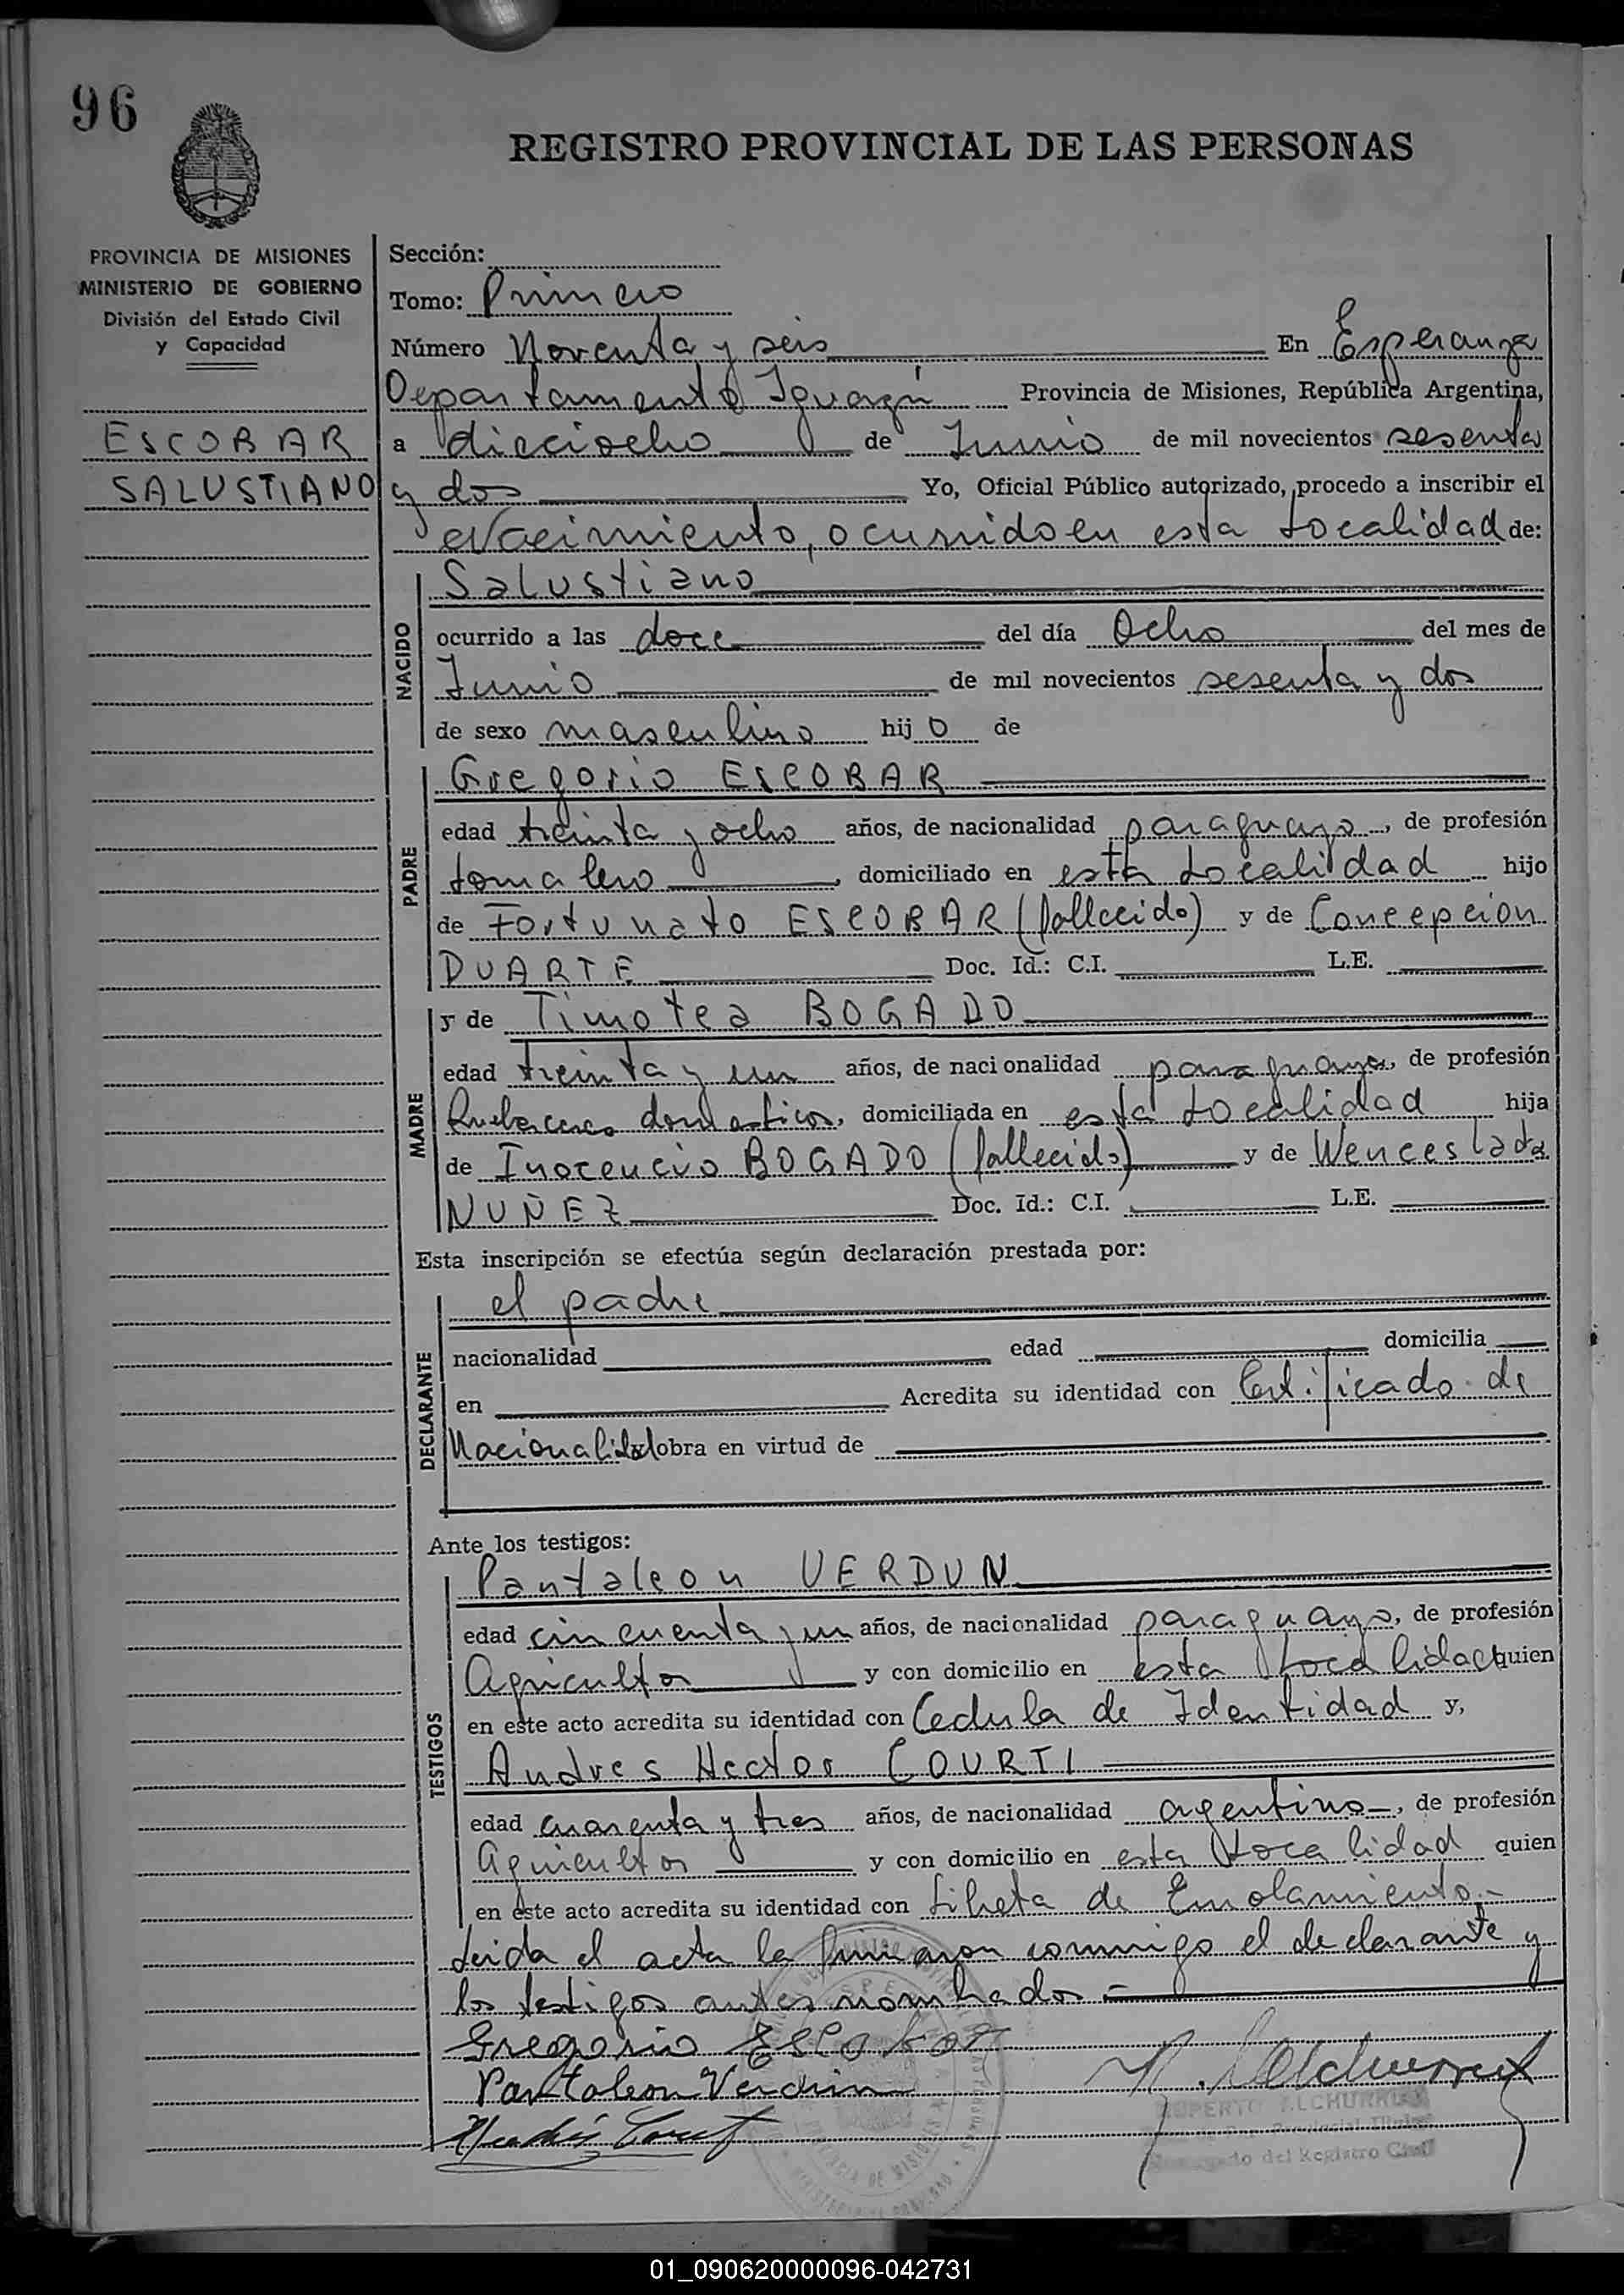 96
REGISTRO PROVINCIAL DE LAS PERSONAS
PROVINCIA DE MISIONES
MINISTERIO DE GOBIERNO
División del Estado Civil
y Capacidad
ESCOBAR
SALUSTIANO
Sección:
Tomo: Primero
Número Noventa y seis En Esperanza
Departamento Iguazú Provincia de Misiones, República Argentina,
a dieciocho de Junio de mil novecientos sesenta
y dos Yo, Oficial Público autorizado, procedo a inscribir el
Nacimiento, ocurrido en esta Localidad de:
NACIDO
Salustiano
ocurrido a las doce del día Ocho del mes de
Junio de mil novecientos sesenta y dos
de sexo masculino hijo de
PADRE
Gregorio ESCOBAR
edad treinta y ocho años, de nacionalidad paraguayo, de profesión
Jornalero, domiciliado en esta Localidad hijo
de Fortunato ESCOBAR (fallecido) y de Concepcion
DUARTE Doc. Id.: C.I. L.E.
MADRE
y de Timotea BOGADO
edad treinta y un años, de nacionalidad paraguaya, de profesión
Quehaceres domesticos, domiciliada en esta Localidad hija
de Inocencio BOGADO (fallecido) y de Wenceslada
NUÑEZ Doc. Id.: C.I. L.E.
Esta inscripción se efectúa según declaración prestada por:
DECLARANTE
el padre
nacionalidad edad domicilia
en Acredita su identidad con Certificado de
Nacionalidad obra en virtud de
Ante los testigos:
TESTIGOS
Pantaleon VERDUN
edad cincuenta y un años, de nacionalidad paraguayo, de profesión
Agricultor y con domicilio en esta Localidad quien
en este acto acredita su identidad con Cedula de Identidad y,
Andres Hector COURTI
edad cuarenta y tres años, de nacionalidad argentino, de profesión
agricultor y con domicilio en esta Localidad quien
en este acto acredita su identidad con Libreta de Enrolamiento.-
Leida el acta la firmaron conmigo el declarante y
los testigos antes nombrados.-
Gregorio Escobar
Pantaleon Verdun
RUPERTO ALCHURRUT
del Registro Civil
01_090620000096-042731